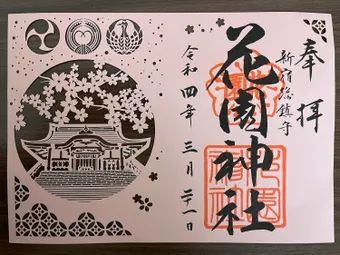 奉拝
新宿総鎮守
花園神社
令和四年三月二十一日